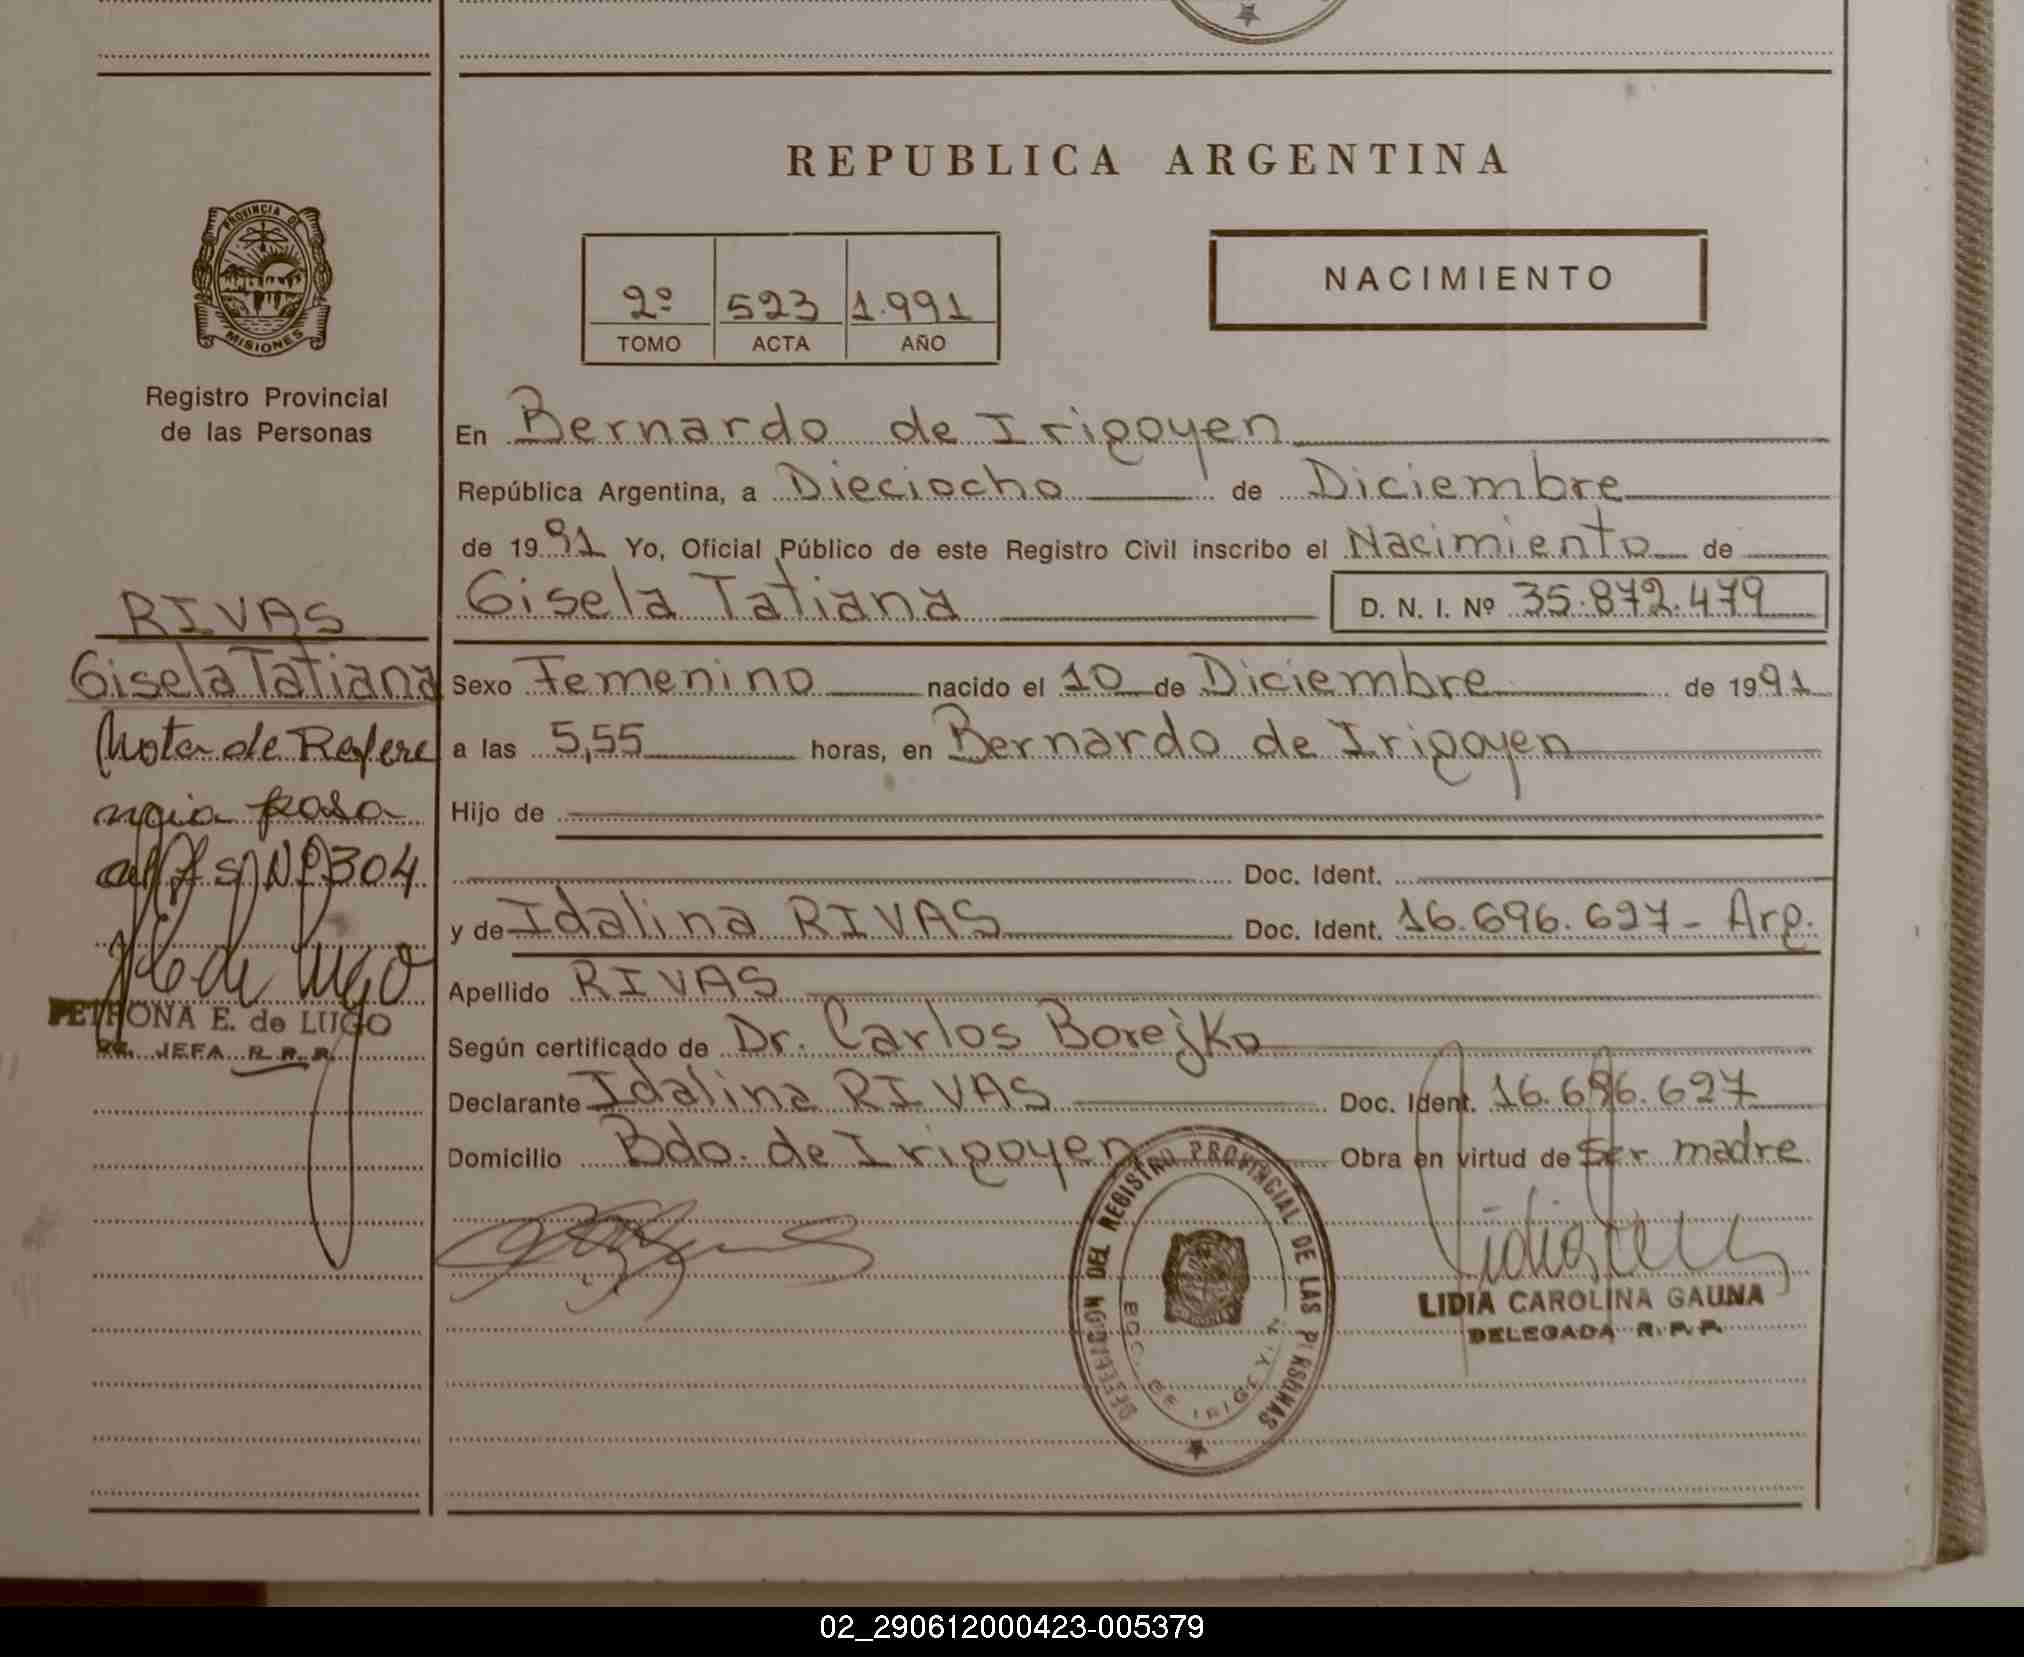 REPUBLICA ARGENTINA
PROVINCIA DE
MISIONES
Registro Provincial
de las Personas
2º 523 1.991
TOMO ACTA AÑO
NACIMIENTO
En Bernardo de Irigoyen
República Argentina, a Dieciocho de Diciembre
de 1991 Yo, Oficial Público de este Registro Civil inscribo el Nacimiento de
Gisela Tatiana D. N. I. Nº 35.872.479
Sexo Femenino nacido el 10 de Diciembre de 1991
a las 5,55 horas, en Bernardo de Irigoyen
Hijo de
Doc. Ident.
y de Idalina RIVAS Doc. Ident. 16.696.627- Arg.
Apellido RIVAS
Según certificado de Dr. Carlos Borejko
Declarante Idalina RIVAS Doc. Ident. 16.696.627
Domicilio Bdo. de Irigoyen Obra en virtud de ser madre
RIVAS
Gisela Tatiana
Nota de Refere
ncia pasa
Nº 304
PETRONA E. de LUGO
JEFA R. P. P.
DELEGACION DEL REGISTRO PROVINCIAL DE LAS PERSONAS
BDO. DE IRIGOYEN
LIDIA CAROLINA GAUNA
DELEGADA R. P. P.
02_290612000423-005379